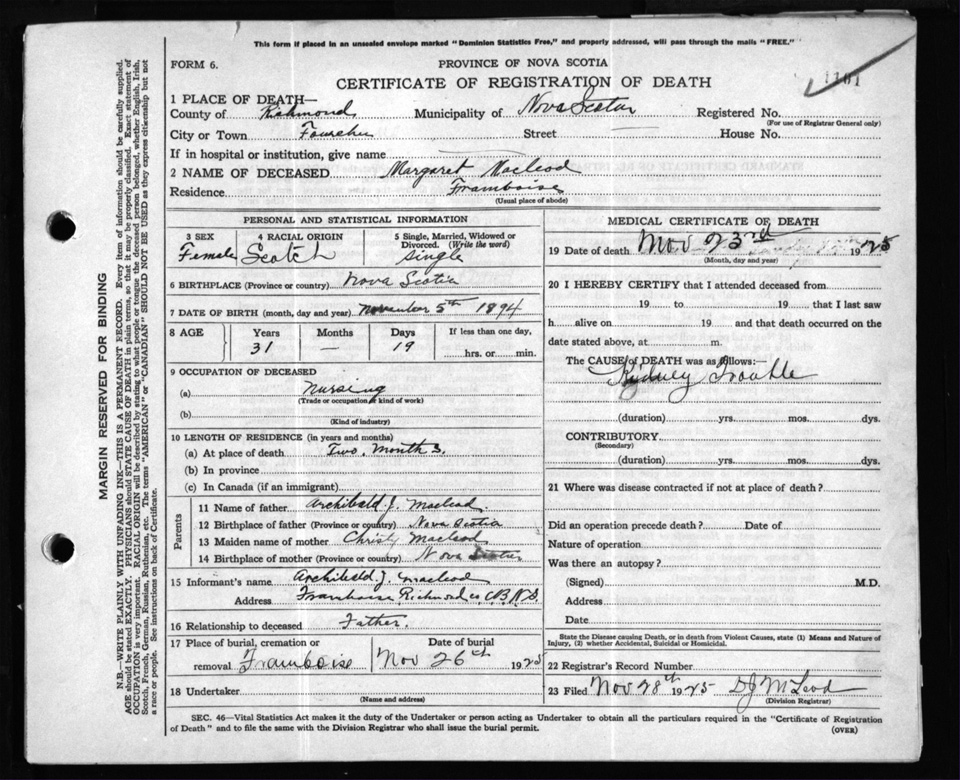 This form if placed in an unsealed envelope marked "Dominion Statistics Free," and properly addressed, will pass through the mails "FREE."
FORM 6.
PROVINCE OF NOVA SCOTIA
CERTIFICATE OF REGISTRATION OF DEATH
1101
1 PLACE OF DEATH—
County of Richmond Municipality of Nova Scotia Registered No.
(For use of Registrar General only)
City or Town Fourchu Street House No.
If in hospital or institution, give name
2 NAME OF DECEASED Margaret Macleod
Residence Framboise
(Usual place of abode)
PERSONAL AND STATISTICAL INFORMATION
3 SEX
Female
4 RACIAL ORIGIN
Scotch
5 Single, Married, Widowed or
Divorced. (Write the word)
Single
6 BIRTHPLACE (Province or country) Nova Scotia
7 DATE OF BIRTH (month, day and year) November 5th 1894
8 AGE Years Months Days If less than one day,
31 — 19 hrs. or min.
9 OCCUPATION OF DECEASED
(a) Nursing
(Trade or occupation or kind of work)
(b)
(Kind of industry)
10 LENGTH OF RESIDENCE (in years and months)
(a) At place of death Two Months
(b) In province
(c) In Canada (if an immigrant)
Parents
11 Name of father Archibald J. Macleod
12 Birthplace of father (Province or country) Nova Scotia
13 Maiden name of mother Christy Macleod
14 Birthplace of mother (Province or country) Nova Scotia
15 Informant's name Archibald J. Macleod
Address Framboise Richmond co C.B. N.S.
16 Relationship to deceased Father.
17 Place of burial, cremation or Date of burial
removal Framboise Nov 26th 1925
18 Undertaker
(Name and address)
MEDICAL CERTIFICATE OF DEATH
19 Date of death Nov 23rd 1925
(Month, day and year)
20 I HEREBY CERTIFY that I attended deceased from
19 to 19 that I last saw
h alive on 19 and that death occurred on the
date stated above, at m.
The CAUSE of DEATH was as follows:—
Kidney Trouble
(duration) yrs. mos. dys.
CONTRIBUTORY
(Secondary)
(duration) yrs. mos. dys.
21 Where was disease contracted if not at place of death?
Did an operation precede death? Date of
Nature of operation
Was there an autopsy?
(Signed) M.D.
Address
Date
State the Disease causing Death, or in death from Violent Causes, state (1) Means and Nature of
Injury, (2) whether Accidental, Suicidal or Homicidal.
22 Registrar's Record Number
23 Filed Nov 28th 1925 D J McLeod
(Division Registrar)
SEC. 46—Vital Statistics Act makes it the duty of the Undertaker or person acting as Undertaker to obtain all the particulars required in the "Certificate of Registration
of Death" and to file the same with the Division Registrar who shall issue the burial permit.
(OVER)
MARGIN RESERVED FOR BINDING
N.B.—WRITE PLAINLY WITH UNFADING INK—THIS IS A PERMANENT RECORD. Every item of information should be carefully supplied.
AGE should be stated EXACTLY. PHYSICIANS should STATE CAUSE OF DEATH in plain terms, so that it may be properly classified. Exact statement of
OCCUPATION is very important. RACIAL ORIGIN will be described by stating to what people or tongue the deceased person belonged, whether English, Irish,
Scotch, French, German, Russian, Ruthenian, etc. The terms "AMERICAN" or "CANADIAN" SHOULD NOT BE USED as they express citizenship but not
a race or people. See instructions on back of Certificate.